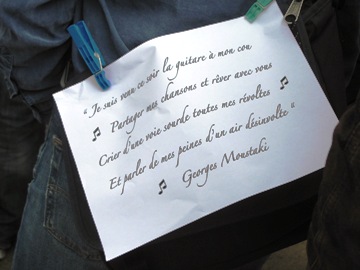 “ Je suis venu ce soir la guitare à mon cou
Partager mes chansons et rêver avec vous
Crier d'une voie sourde toutes mes révoltes
Et parler de mes peines d'un air désinvolte “
Georges Moustaki